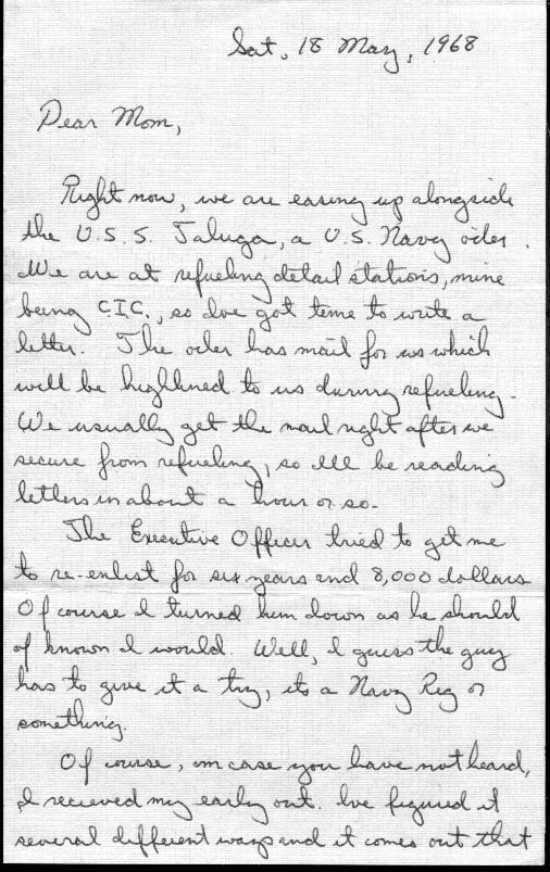 Sat, 18 May, 1968
Dear Mom,
Right now, we are easing up alongside
the U.S.S. Taluga, a U.S. Navy oiler.
We are at refueling detail stations, mine
being C.I.C., so Ive got time to write a
letter. The oiler has mail for us which
will be highlined to us during refueling.
We usually get the mail right after we
secure from refueling, so Ill be reading
letters in about a hour or so.
The Executive Officer tried to get me
to re-enlist for six years and 8,000 dollars
Of course I turned him down as he should
of known I would. Well, I guess the guy
has to give it a try, its a Navy Reg or
something.
Of course, in case you have not heard,
I recieved my early out. Ive figured it
several different ways and it comes out that